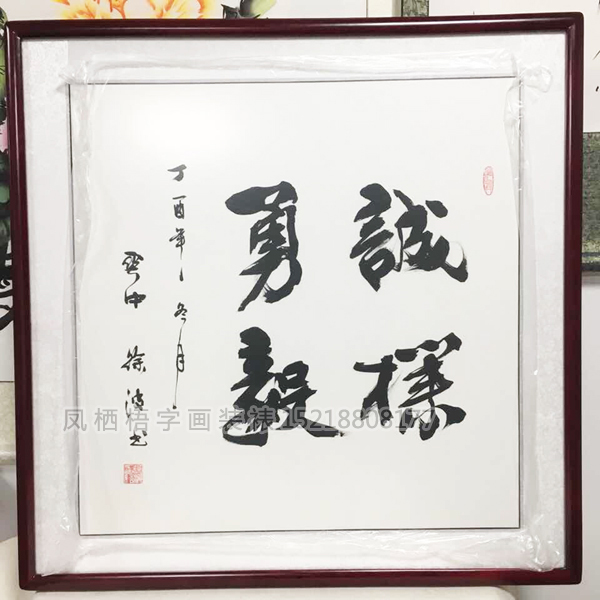 誠樸
勇毅
丁酉年冬月
中 徐 书
凤栖梧字画装裱15218808177